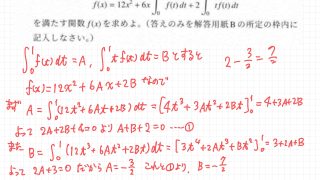 f(x) = 12x² + 6x∫₀¹ f(t)dt + 2∫₀¹ tf(t)dt
を満たす関数 f(x) を求めよ。(答えのみを解答用紙Bの所定の枠内
に記入しなさい。)
∫₀¹f(t)dt = A, ∫₀¹tf(t)dt = B とすると 2 - 3/2 = 7/2
f(x) = 12x² + 6Ax + 2B なので
まず A = ∫₀¹(12t² + 6At + 2B)dt = [4t³ + 3At² + 2Bt]₀¹ = 4+3A+2B
よって 2A+2B+4=0 より A+B+2=0 ----①
また
B = ∫₀¹(12t³ + 6At² + 2Bt)dt = [3t⁴ + 2At³ + Bt²]₀¹ = 3+2A+B
よって 2A+3=0 だから A = -3/2 これと①より、B = -7/2